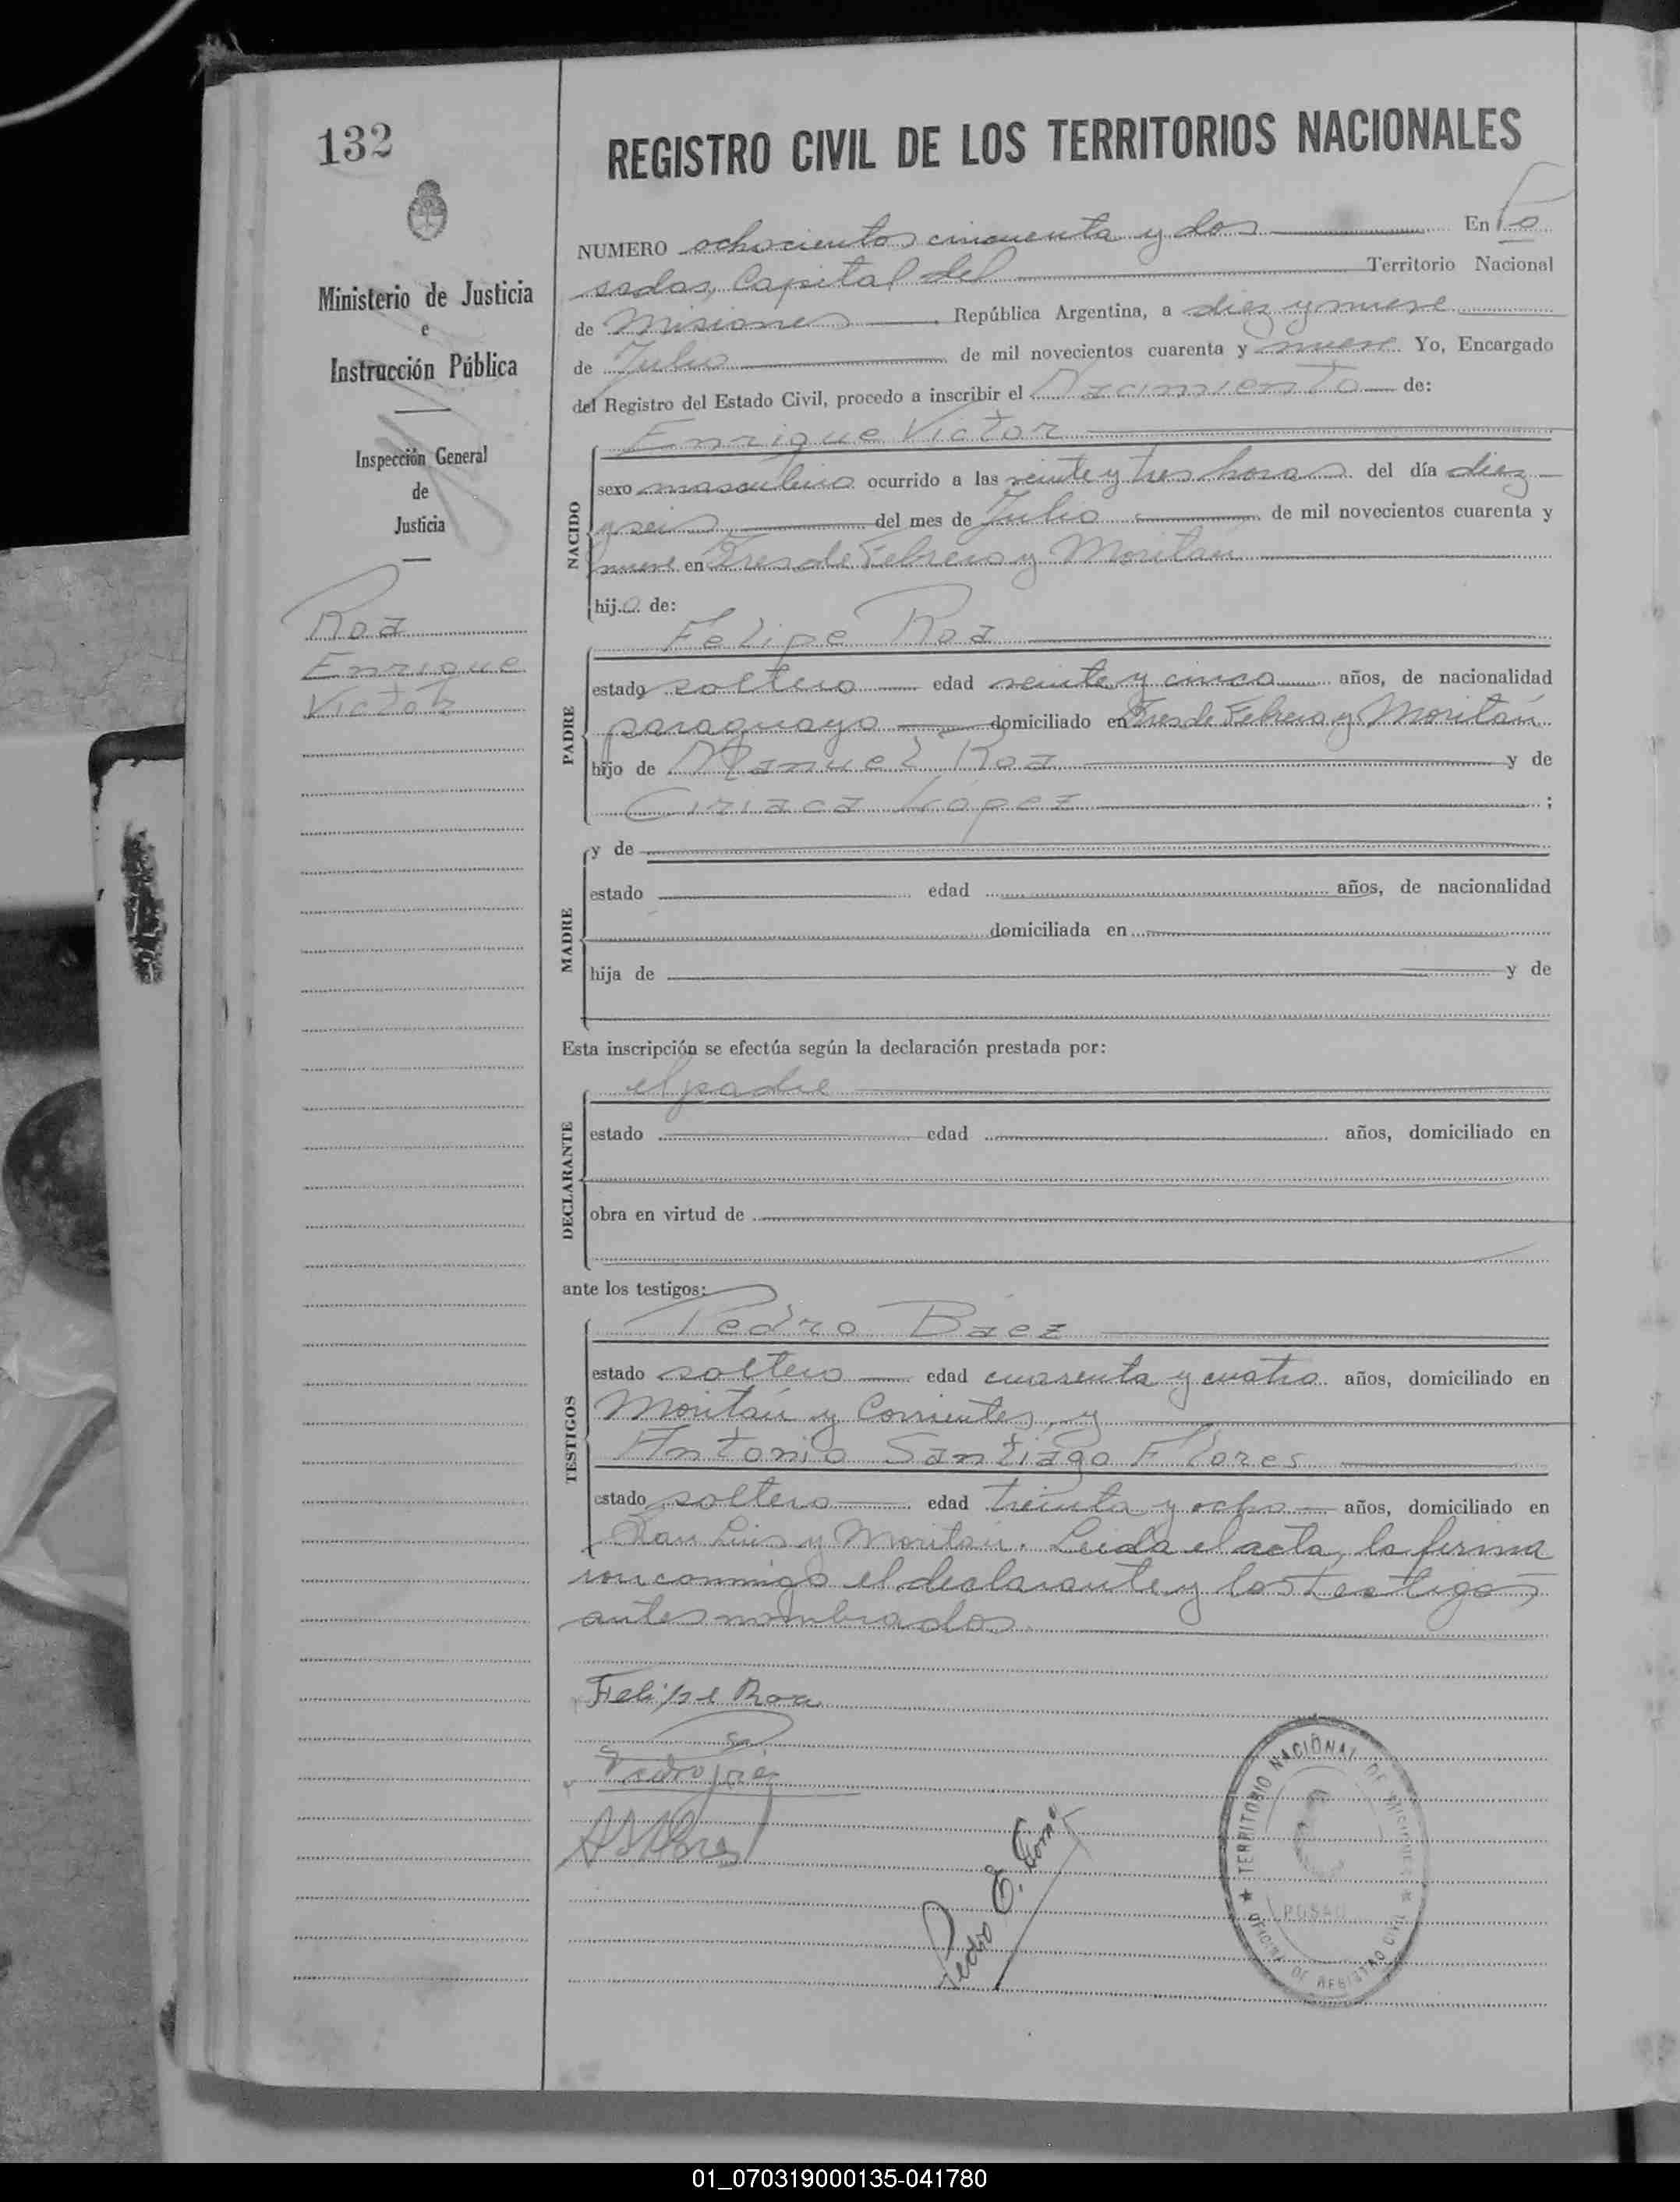 132
REGISTRO CIVIL DE LOS TERRITORIOS NACIONALES
Ministerio de Justicia
e
Instrucción Pública
Inspección General
de
Justicia
Roa
Enrique
Victor
NUMERO ochocientos cincuenta y dos En Po
sadas, Capital del Territorio Nacional
de Misiones República Argentina, a diez y nueve
de Julio de mil novecientos cuarenta y nueve Yo, Encargado
del Registro del Estado Civil, procedo a inscribir el Nacimiento de:
NACIDO
Enrique Victor
sexo masculino ocurrido a las veinte y tres horas del día diez
y seis del mes de Julio de mil novecientos cuarenta y
nueve en Tres de Febrero y Moritán
hijo de:
PADRE
Felipe Roa
estado soltero edad veinte y cinco años, de nacionalidad
paraguaya domiciliado en Tres de Febrero y Moritán
hijo de Manuel Roa y de
Ciriaca López ;
MADRE
y de
estado edad años, de nacionalidad
domiciliada en
hija de y de
Esta inscripción se efectúa según la declaración prestada por:
DECLARANTE
el padre
estado edad años, domiciliado en
obra en virtud de
ante los testigos:
TESTIGOS
Pedro Báez
estado soltero edad cuarenta y cuatro años, domiciliado en
Moritán y Corrientes, y
Antonio Santiago Flores
estado soltero edad treinta y ocho años, domiciliado en
San Luis y Moritán. Leída el acta, la firma
ron conmigo el declarante y los testigos
antes nombrados.
Felipe Roa
Pedro E.
TERRITORIO NACIONAL DE MISIONES
POSADAS
OFICINA DE REGISTRO CIVIL
01_070319000135-041780